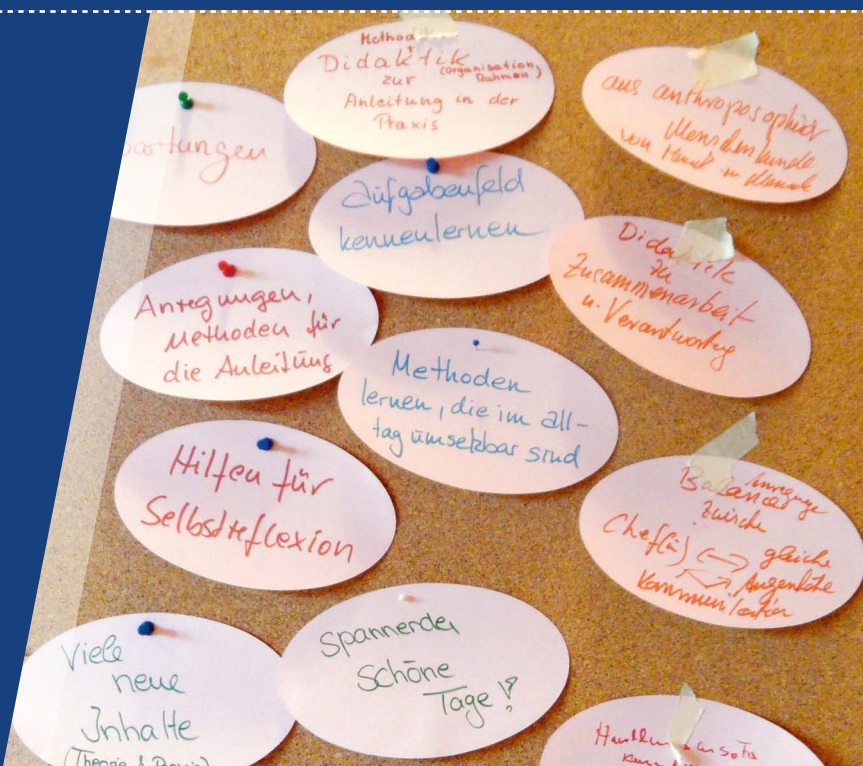 Methodik
+
Didaktik
(Organisation,
Rahmen)
zur
Anleitung in der
Praxis
aus anthroposophisch
Menschenkunde
von Mensch zu Mensch
artungen
Aufgabenfeld
kennenlernen
Didaktik
zu
Zusammenarbeit
u. Verantwortung
Anregungen,
Methoden für
die Anleitung
Methoden
lernen, die im All-
tag umsetzbar sind
Hilfen für
Selbstreflexion
Balance
zwische
Chef(in) ↔ gleiche
Augenhöhe
Kommunikation
Viele
neue
Inhalte
(Theorie & Praxis)
Spannende,
schöne
Tage!